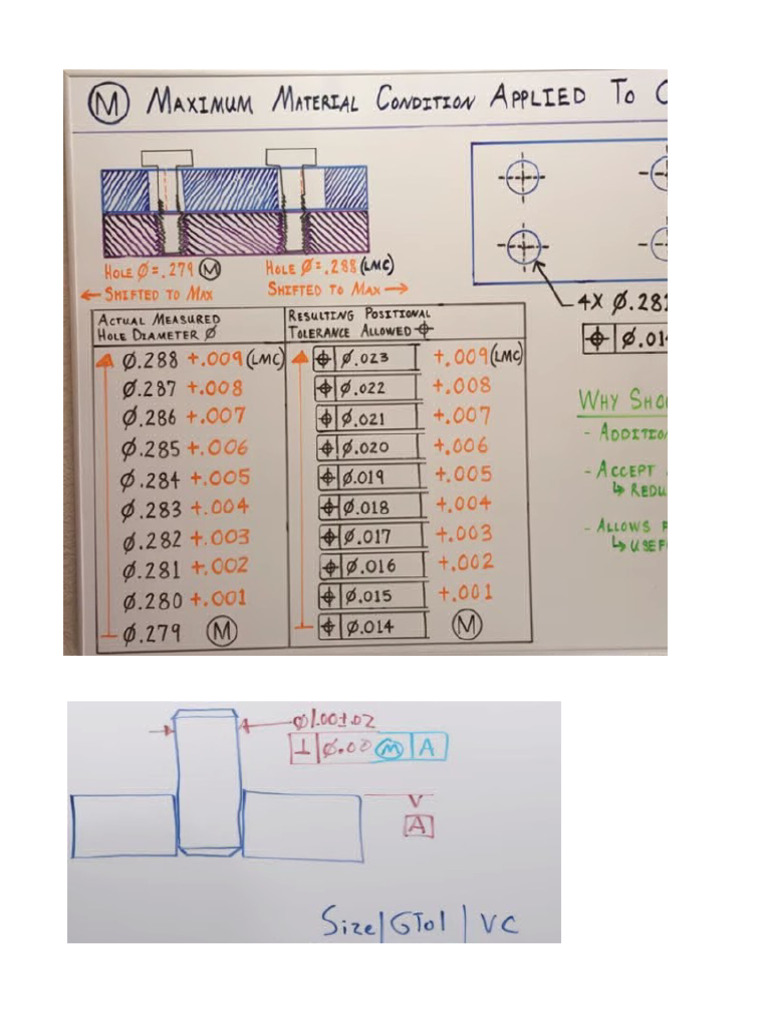 Ⓜ MAXIMUM MATERIAL CONDITION APPLIED TO
HOLE Ø=.279 Ⓜ
← SHIFTED TO MAX
HOLE Ø=.288 (LMC)
SHIFTED TO MAX →
ACTUAL MEASURED
HOLE DIAMETER Ø
RESULTING POSITIONAL
TOLERANCE ALLOWED ⌖
Ø.288 +.009 (LMC) ⌖ Ø.023 +.009 (LMC)
Ø.287 +.008 ⌖ Ø.022 +.008
Ø.286 +.007 ⌖ Ø.021 +.007
Ø.285 +.006 ⌖ Ø.020 +.006
Ø.284 +.005 ⌖ Ø.019 +.005
Ø.283 +.004 ⌖ Ø.018 +.004
Ø.282 +.003 ⌖ Ø.017 +.003
Ø.281 +.002 ⌖ Ø.016 +.002
Ø.280 +.001 ⌖ Ø.015 +.001
Ø.279 Ⓜ ⌖ Ø.014 Ⓜ
4X Ø.28
⌖ Ø.01
WHY SHO
- ADDITIO
- ACCEPT
↳ REDU
- ALLOWS
↳ USEF
Ø1.00±.02
⊥ Ø.00 Ⓜ A
A
Size | GTol | VC